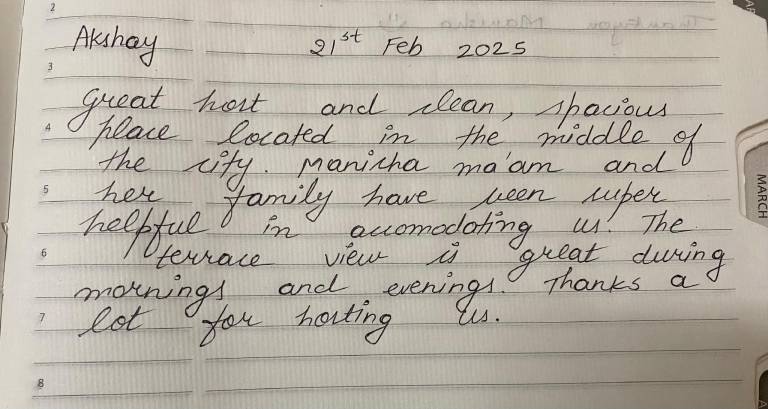 Akshay 21st Feb 2025
Great host and clean, spacious
place located in the middle of
the city. Manisha ma'am and
her family have been super
helpful in accomodating us. The
terrace view is great during
mornings and evenings. Thanks a
lot for hosting us.
2
3
4
5
6
7
8
MARCH